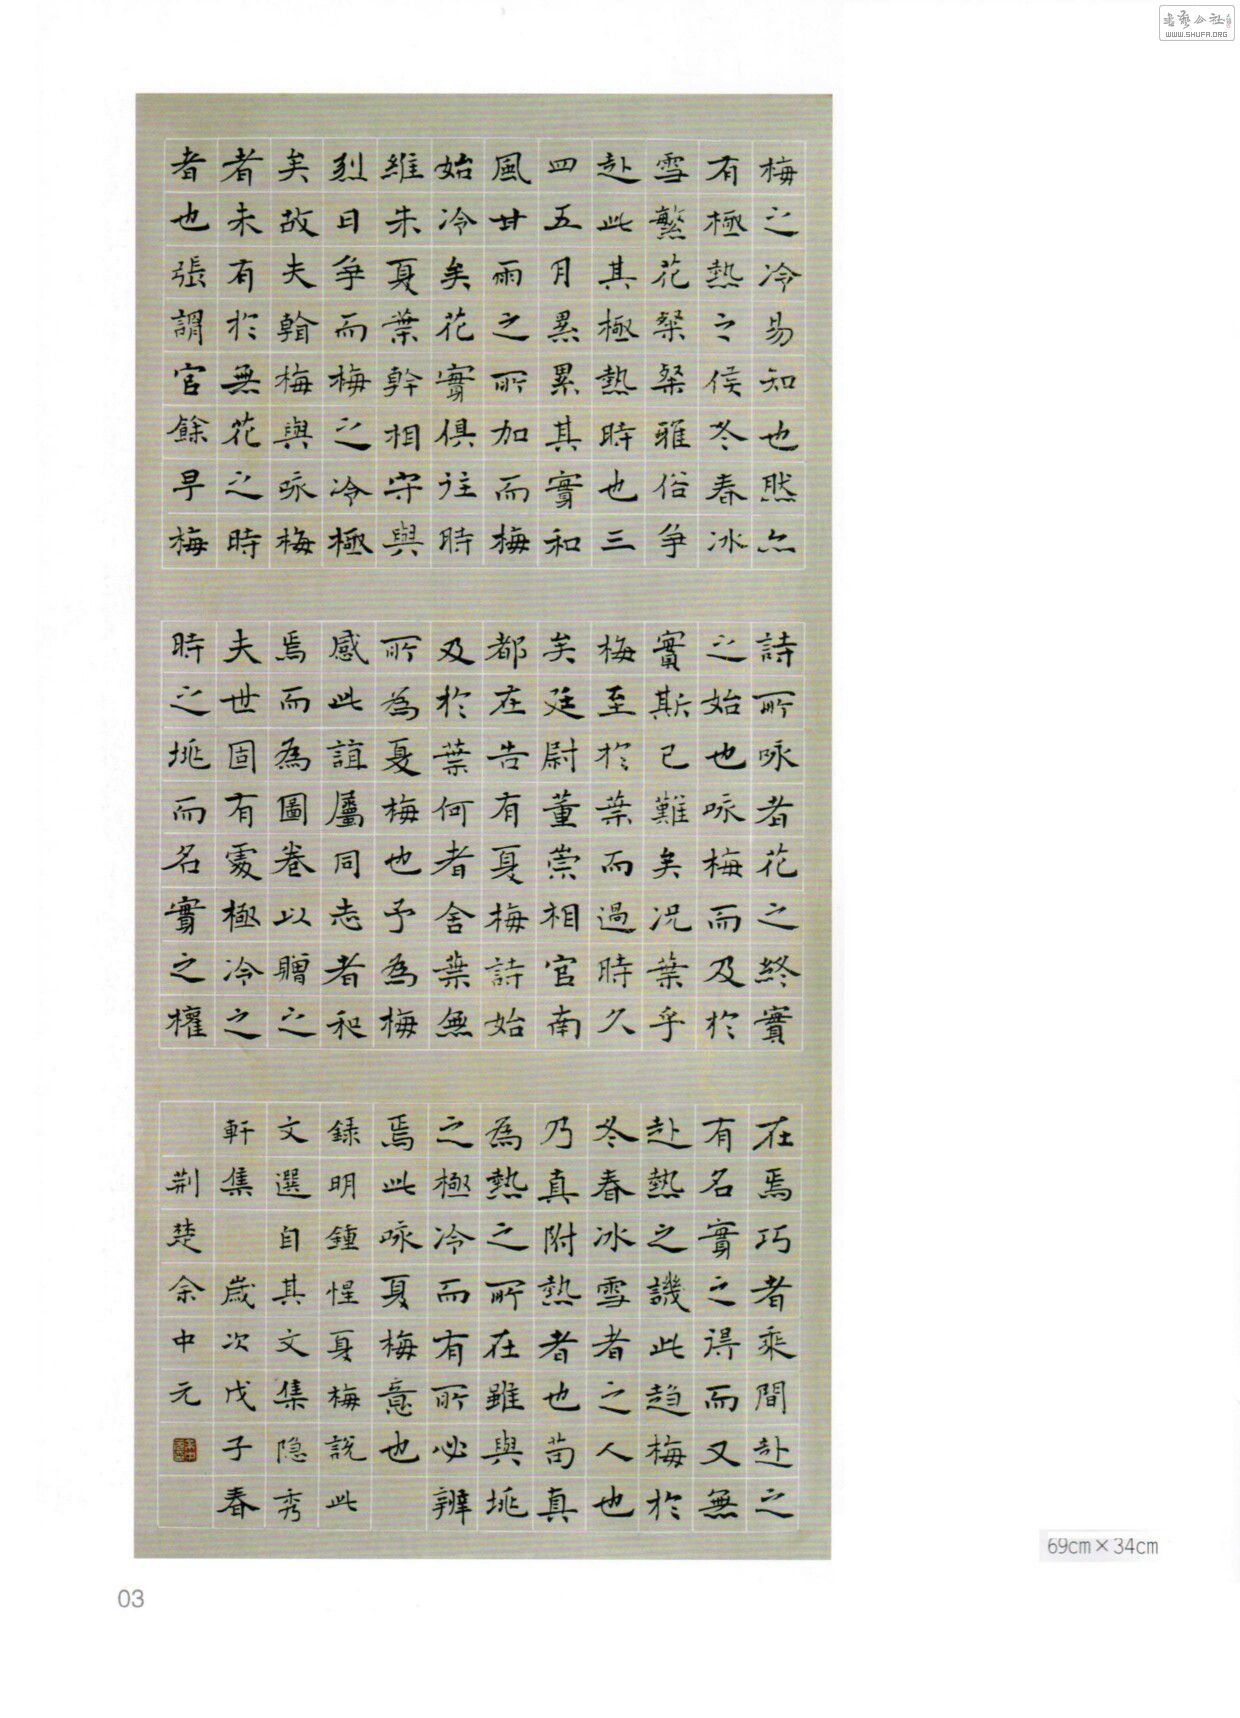 梅之冷易知也然亦
有極熱之侯冬春冰
雪繁花粲粲雅俗爭
赴此其極熱時也三
四五月累累其實和
風甘雨之所加而梅
始冷矣花實俱往時
維朱夏葉幹相守與
烈日爭而梅之冷極
矣故夫翰梅與咏梅
者未有於無花之時
者也張謂官餘早梅
詩所咏者花之終實
之始也咏梅而及於
實斯已難矣況葉乎
梅至於葉而過時久
矣廷尉董崇相官南
都在告有夏梅詩始
及於葉何者舍葉無
所為夏梅也予為梅
感此誼屬同志者和
焉而為圖卷以贈之
夫世固有處極冷之
時之地而名實之權
在焉巧者乘間赴之
有名實之得而又無
赴熱之譏此趋梅於
冬春冰雪者之人也
乃真附熱者也苟真
為熱之所在雖與地
之極冷而有所必辨
焉此咏夏梅意也
録明鍾惺夏梅說此
文選自其文集隐秀
軒集 歲次戊子春
荊楚余中元
69cm×34cm
03
书艺公社
WWW.SHUFA.ORG